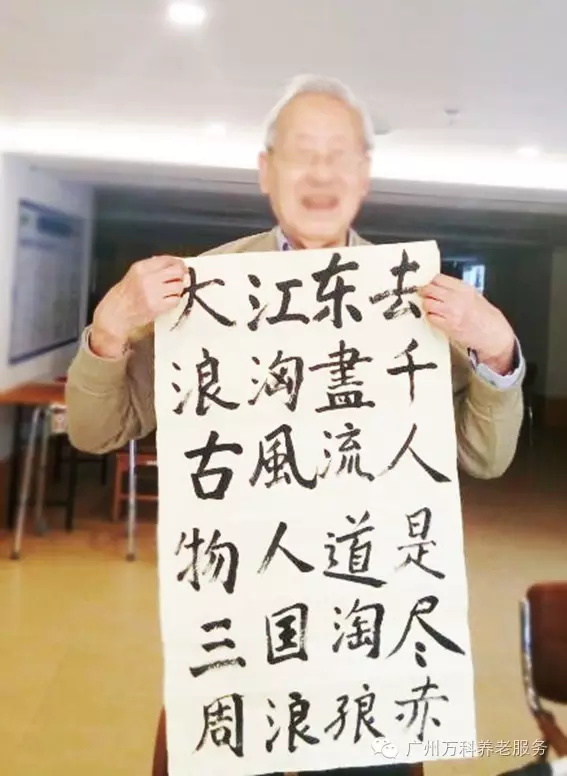 大江东去
浪淘盡千
古風流人
物人道是
三国淘尽
周浪赤
广州万科养老服务